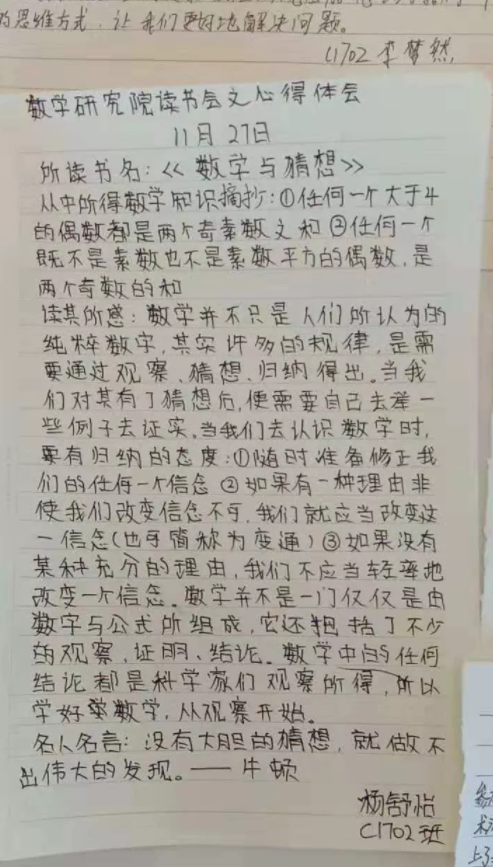 的思维方式，让我们更好地解决问题。
C1702 李梦然
数学研究院读书会之心得体会
11月27日
所读书名：《数学与猜想》
从中所得数学知识摘抄：①任何一个大于4
的偶数都是两个奇素数之和 ②任何一个
既不是素数也不是素数平方的偶数，是
两个奇数的和
读其所感：数学并不只是人们所认为的
纯粹数字，其实许多的规律，是需
要通过观察、猜想、归纳得出。当我
们对其有了猜想后，便需要自己去举一
些例子去证实。当我们去认识数学时，
要有归纳的态度：①随时准备修正我
们的任何一个信念 ②如果有一种理由非
使我们改变信念不可，我们就应当改变这
一信念（也可简称为变通）③如果没有
某种充分的理由，我们不应当轻率地
改变一个信念。数学并不是一门仅仅是由
数字与公式所组成，它还把括了不少
的观察、证明、结论。数学中的任何
结论都是科学家们观察所得，所以
学好数学，从观察开始。
名人名言：没有大胆的猜想，就做不
出伟大的发现。——牛顿
杨舒怡
C1702班